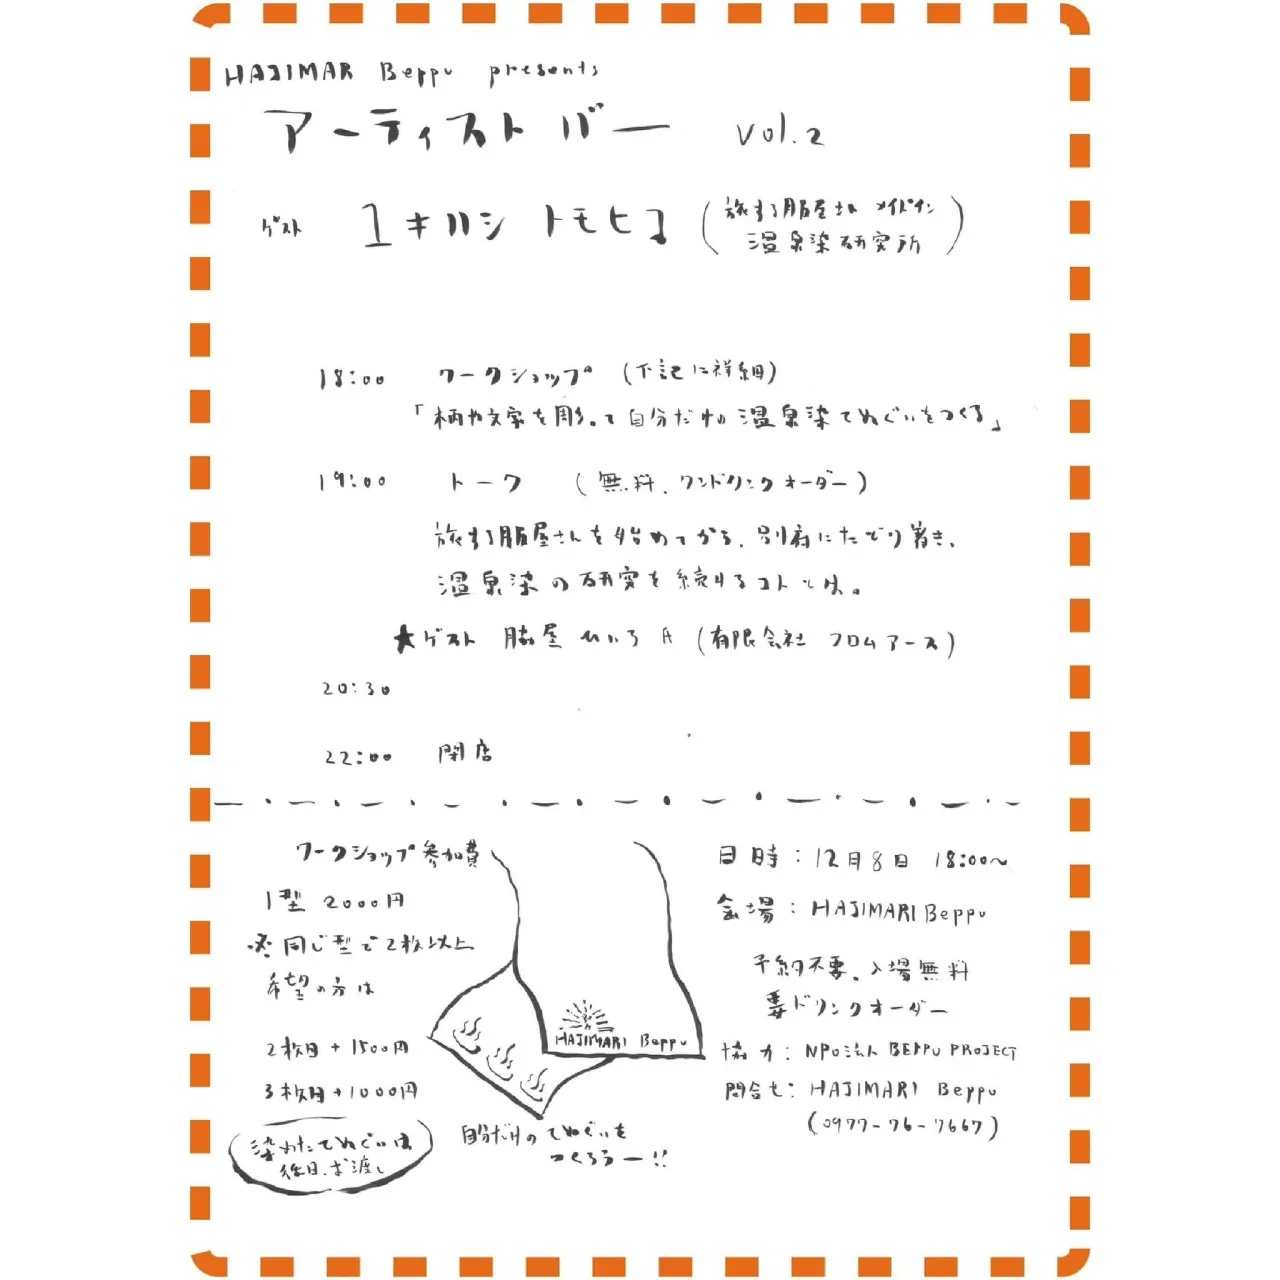 HAJIMAR Beppu presents
アーティスト バー vol.2
ゲスト 1キハシ トモヒコ (旅する服屋さん メイドイン
温泉染研究所)
18:00 ワークショップ (下記に詳細)
「柄や文字を彫って自分だけの温泉染てぬぐいをつくる」
19:00 トーク (無料、ワンドリンクオーダー)
旅する服屋さんを始めてから、別府にたどり着き、
温泉染の研究を続けるコトとは。
★ゲスト 脇屋 (有限会社 フロムアース)
20:30
22:00 閉店
ワークショップ参加費
1型 2000円
※同じ型で2枚以上
希望の方は
2枚目+1500円
3枚目+1000円
染めたてぬぐいは
後日、お渡し
HAJIMARI Beppu
自分だけのてぬぐいを
つくろうー!!
日時:12月8日 18:00〜
会場:HAJIMARI Beppu
予約不要、入場無料
要ドリンクオーダー
協力:NPO法人 BEPPU PROJECT
問合せ:HAJIMARI Beppu
(0977-76-7667)